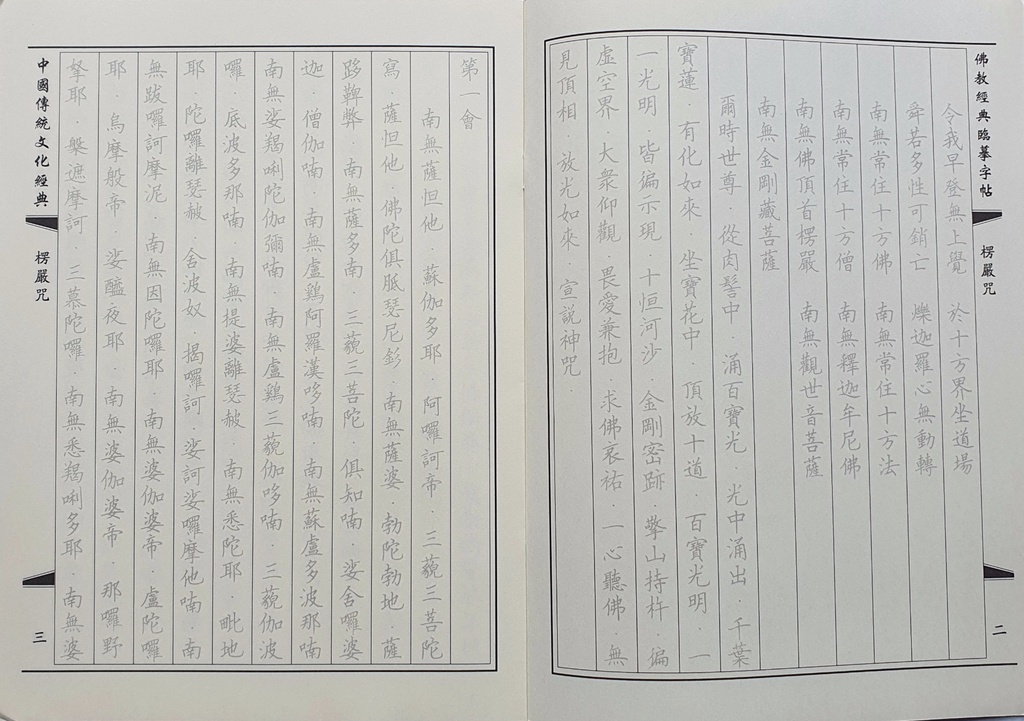 佛教經典臨摹字帖
楞嚴咒
二
令我早登無上覺　於十方界坐道場
舜若多性可銷亡　爍迦羅心無動轉
南無常住十方佛　南無常住十方法
南無常住十方僧　南無釋迦牟尼佛
南無佛頂首楞嚴　南無觀世音菩薩
南無金剛藏菩薩
爾時世尊．從肉髻中．涌百寶光．光中涌出．千葉
寶蓮．有化如來．坐寶花中．頂放十道．百寶光明．一
一光明．皆徧示現．十恒河沙．金剛密跡．擎山持杵．徧
虛空界．大衆仰觀．畏愛兼抱．求佛哀祐．一心聽佛．無
見頂相．放光如來．宣說神咒．
第一會
南無薩怛他．蘇伽多耶．阿囉訶帝．三藐三菩陀
寫．薩怛他．佛陀俱胝瑟尼釤．南無薩婆．勃陀勃地．薩
跢鞞弊．南無薩多南．三藐三菩陀．俱知喃．娑舍囉婆
迦．僧伽喃．南無盧鷄阿羅漢哆喃．南無蘇盧多波那喃．
南無娑羯唎陀伽彌喃．南無盧鷄三藐伽哆喃．三藐伽波
囉．底波多那喃．南無提婆離瑟赧．南無悉陀耶．毗地
耶．陀囉離瑟赧．舍波奴．揭囉訶．娑訶娑囉摩他喃．南
無跋囉訶摩泥．南無因陀囉耶．南無婆伽婆帝．盧陀囉
耶．烏摩般帝．娑醯夜耶．南無婆伽婆帝．那囉野
拏耶．槃遮摩訶．三慕陀囉．南無悉羯唎多耶．南無婆
中國傳統文化經典
楞嚴咒
三